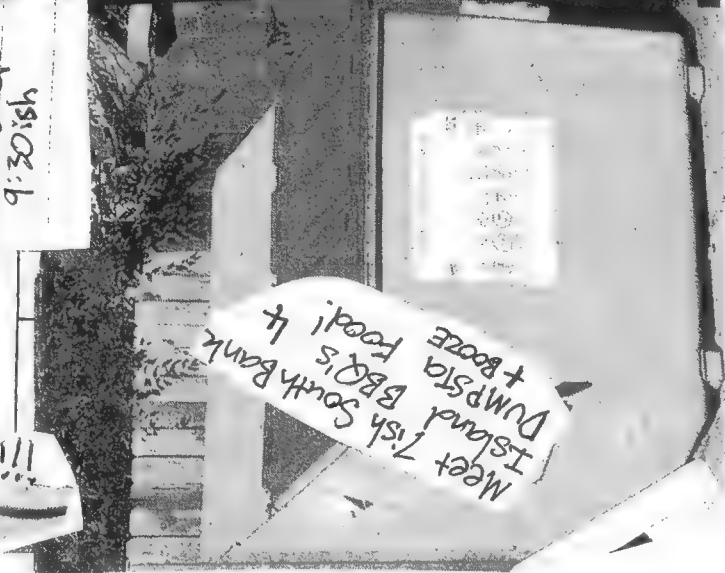 9:30ish
!!!
Meet 7ish South Bank
Island BBQ's 4
DUMPSTA Food!
+ BOOZE